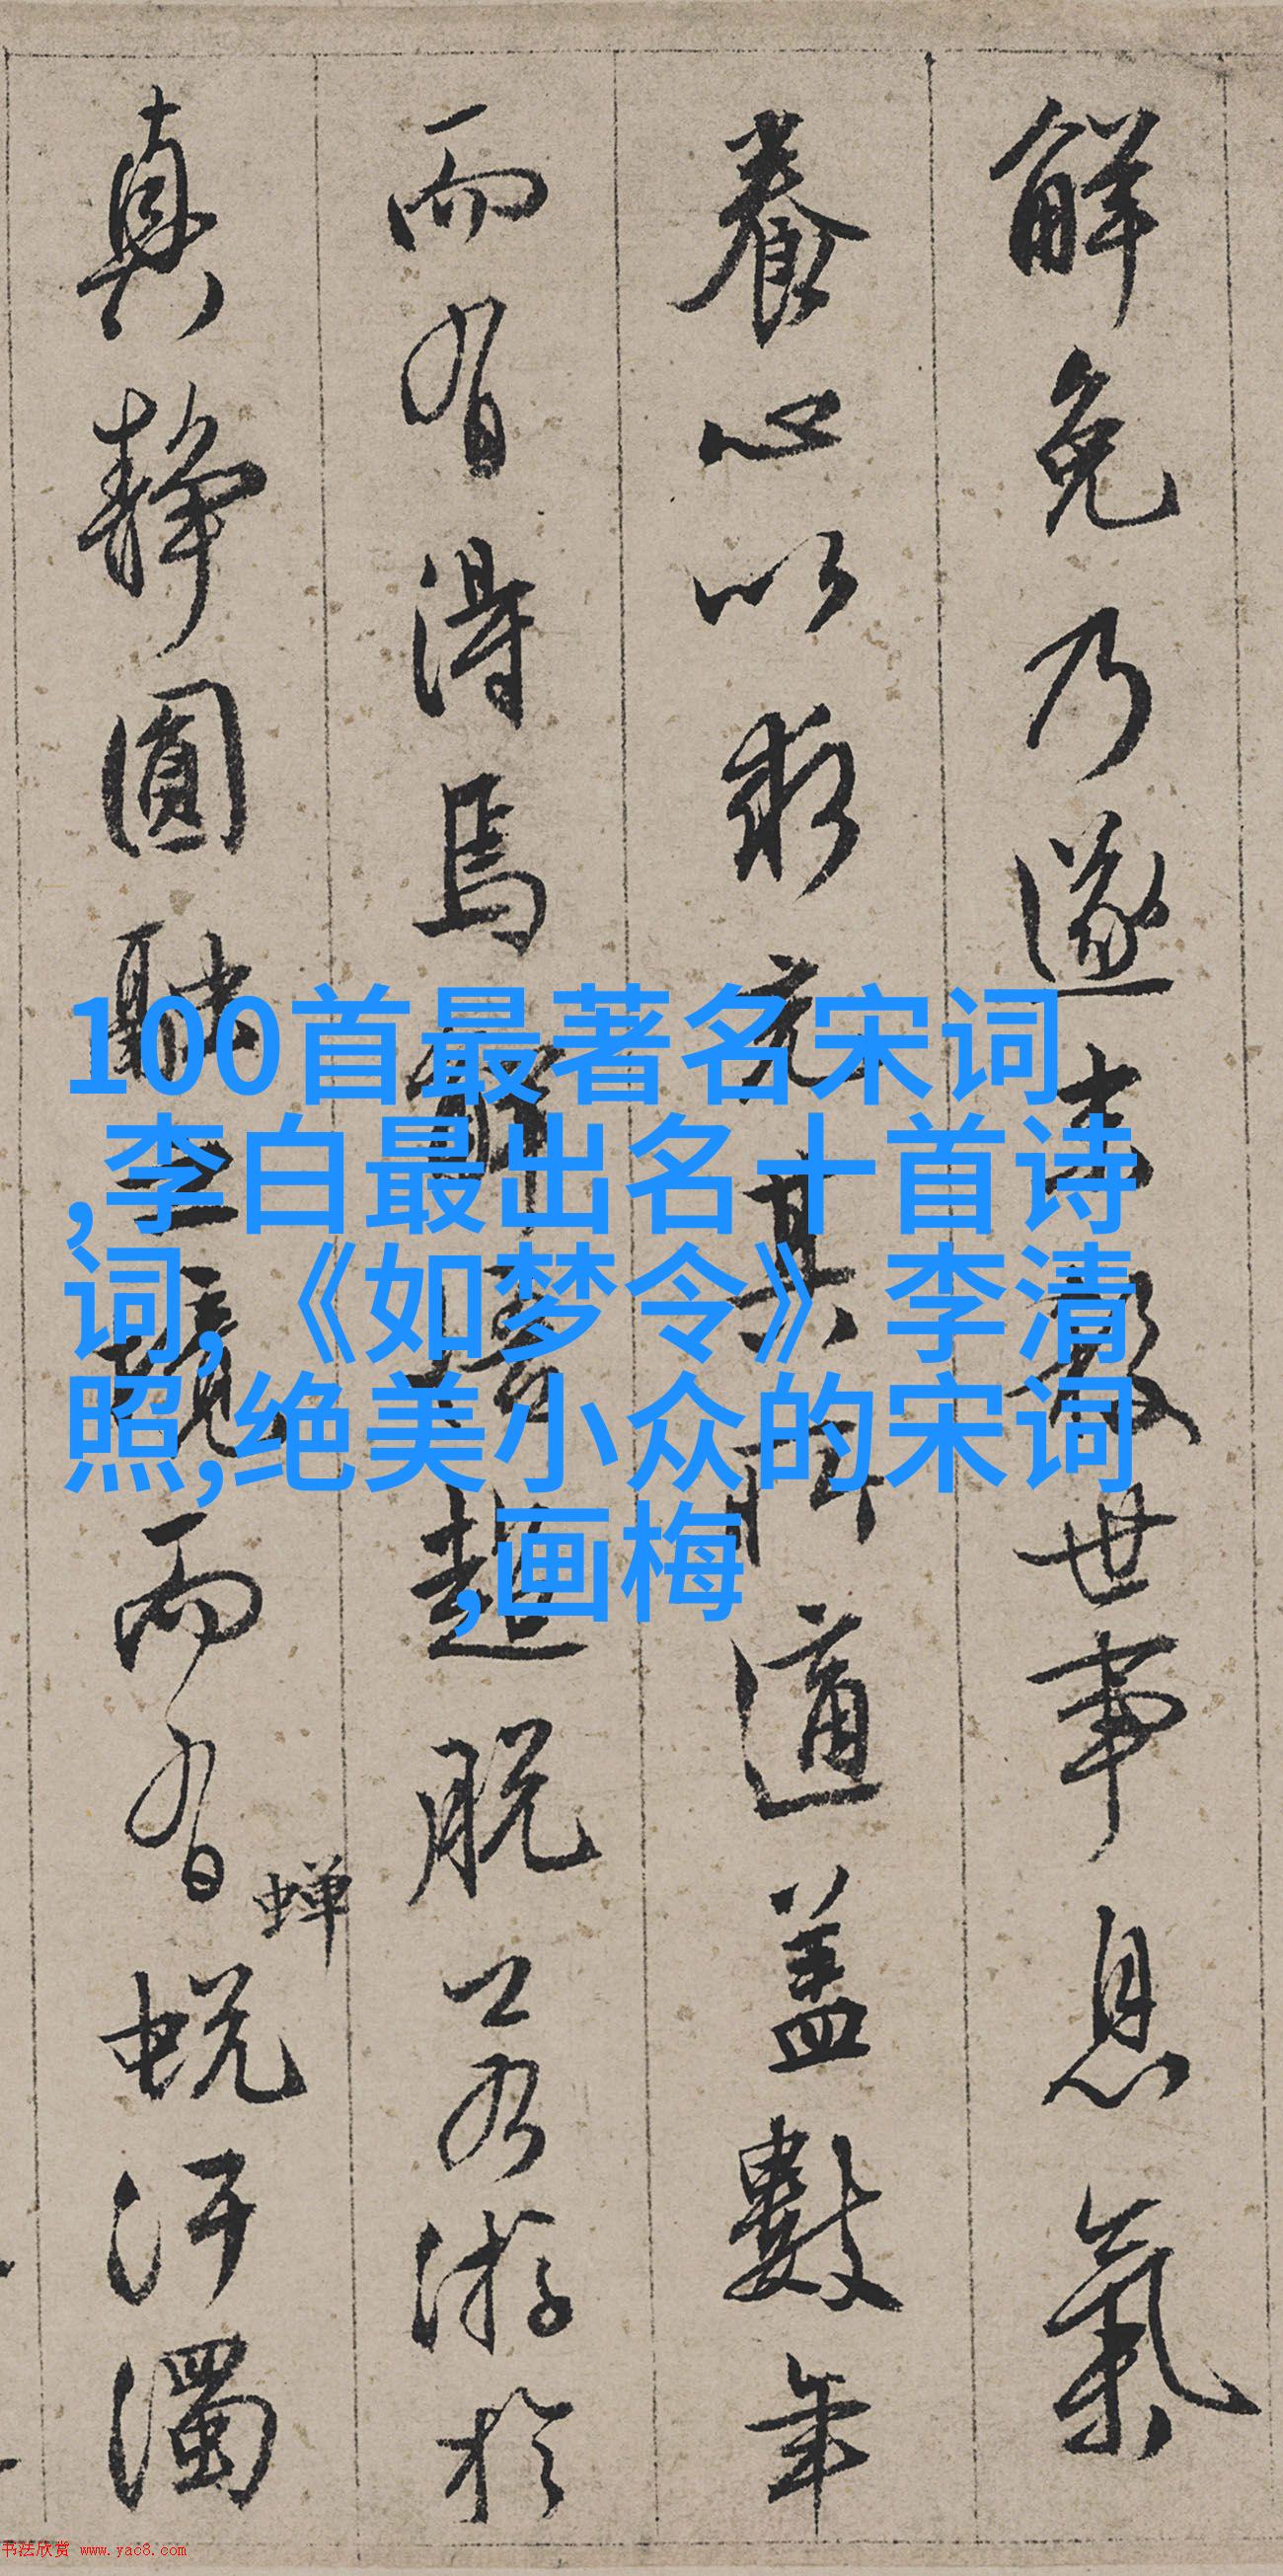 解免乃遂去教世事息氣
養心以求充其所適蓋數年
而有得焉超脫工乃游於
真靜圓融而有蟬蛻汙濁
100首最著名宋词
,李白最出名十首诗
词,《如梦令》李清
照,绝美小众的宋词
,画梅
书法欣赏 www.yac8.com